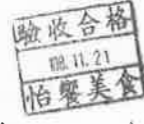 驗收合格
108.11.21
怡饗美食